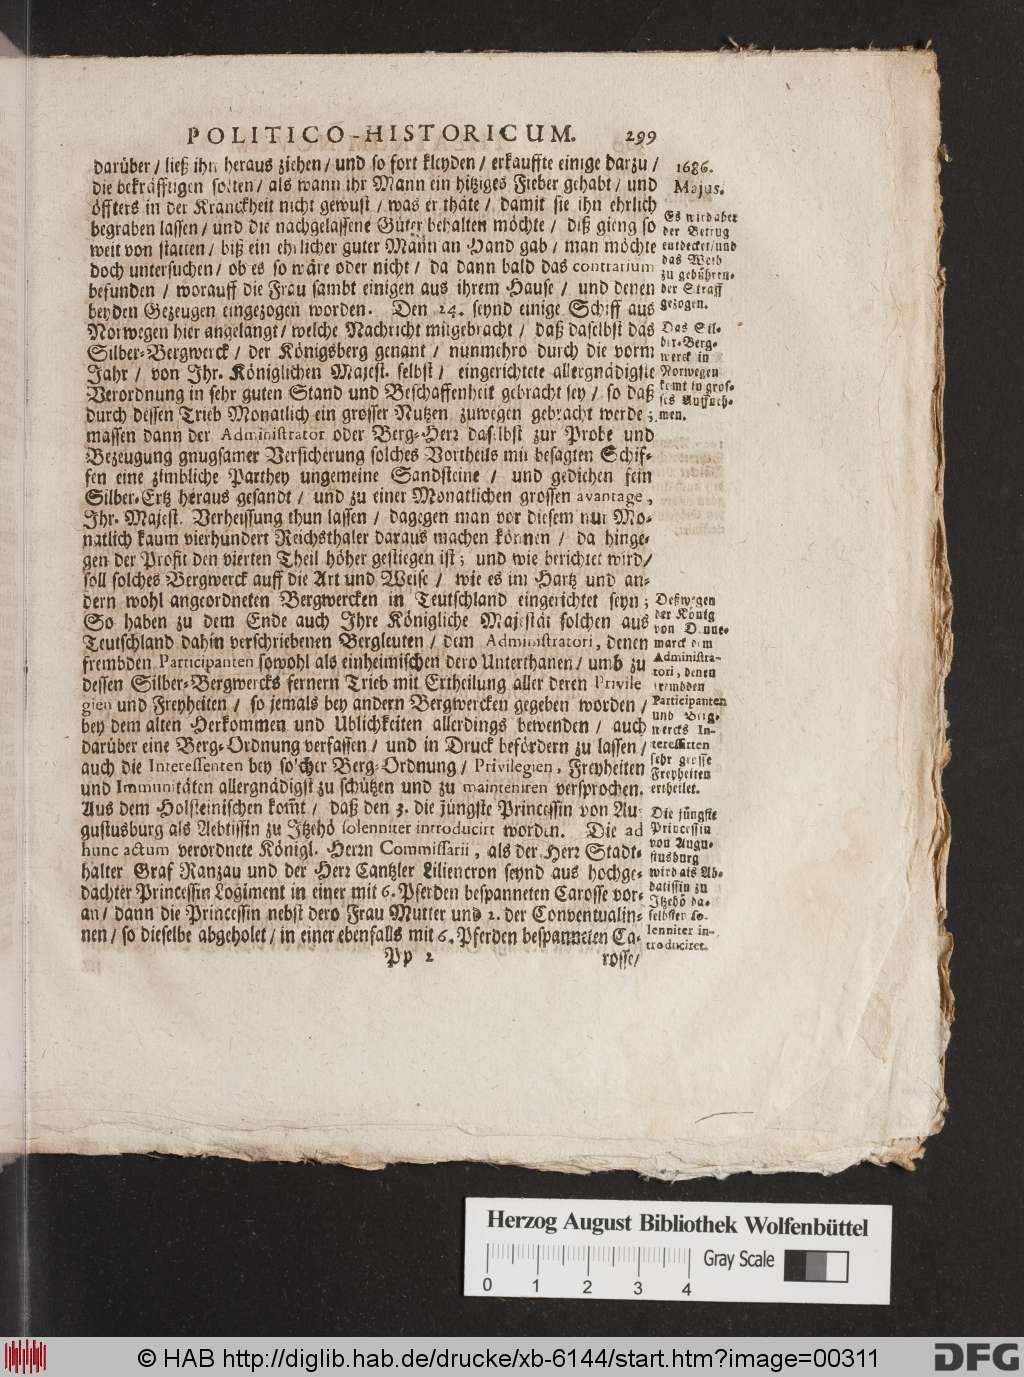 POLITICO-HISTORICUM. 299
darüber / ließ ihn heraus ziehen / und so fort kleyden / erkauffte einige darzu /
die bekräfftigen solten / als wann ihr Mann ein hitziges Fieber gehabt / und
öffters in der Kranckheit nicht gewust / was er thäte / damit sie ihn ehrlich
begraben lassen / und die nachgelassene Güter behalten möchte / diß gieng so
weit von statten / biß ein ehrlicher guter Mann an Hand gab / man möchte
doch untersuchen / ob es so wäre oder nicht / da dann bald das contrarium
befunden / worauff die Frau sambt einigen aus ihrem Hause / und denen
beyden Gezeugen eingezogen worden. Den 24. seynd einige Schiff aus
Norwegen hier angelangt / welche Nachricht mitgebracht / daß daselbst das
Silber-Bergwerck / der Königsberg genant / nunmehro durch die vorm
Jahr / von Ihr. Königlichen Majest. selbst / eingerichtete allergnädigste
Verordnung in sehr guten Stand und Beschaffenheit gebracht sey / so daß
durch dessen Trieb Monatlich ein grosser Nutzen zuwegen gebracht werde ;
massen dann der Administrator oder Berg-Herr daselbst zur Probe und
Bezeugung gnugsamer Versicherung solches Vortheils mit besagten Schif-
fen eine zimbliche Parthey ungemeine Sandsteine / und gediehen fein
Silber-Ertz heraus gesandt / und zu einer Monatlichen grossen avantage,
Ihr. Majest. Verheissung thun lassen / dagegen man vor diesem nur Mo-
natlich kaum vierhundert Reichsthaler daraus machen können / da hinge-
gen der Profit den vierten Theil höher gestiegen ist ; und wie berichtet wird /
soll solches Bergwerck auff die Art und Weise / wie es im Hartz und an-
dern wohl angeordneten Bergwercken in Teutschland eingerichtet seyn ;
So haben zu dem Ende auch Ihre Königliche Majestät solchen aus
Teutschland dahin verschriebenen Bergleuten / dem Administratori, denen
frembden Participanten sowohl als einheimischen dero Unterthanen / umb zu
dessen Silber-Bergwercks fernern Trieb mit Ertheilung aller deren Privile
gien und Freyheiten / so jemals bey andern Bergwercken gegeben worden /
bey dem alten Herkommen und Ublichkeiten allerdings bewenden / auch
darüber eine Berg-Ordnung verfassen / und in Druck befördern zu lassen /
auch die Interessenten bey solcher Berg-Ordnung / Privilegien, Freyheiten
und Immunitäten allergnädigst zu schützen und zu mainteniren versprochen.
Aus dem Holsteinischen komt / daß den 3. die jüngste Princessin von Au-
gustusburg als Aebtissin zu Itzehö solenniter introducirt worden. Die ad
hunc actum verordnete Königl. Herrn Commissarii, als der Herr Stadt-
halter Graf Ranzau und der Herr Cantzler Liliencron seynd aus hochge-
dachter Princessin Logiment in einer mit 6. Pferden bespanneten Carosse vor-
an / dann die Princessin nebst dero Frau Mutter und 2. der Conventualin-
nen / so dieselbe abgeholet / in einer ebenfalls mit 6. Pferden bespanneten Ca-
Pp 2 rosse/
1686.
Majus.
Es wird aber
der Betrug
entdecket/und
das Weib
zu gebühren-
der Straff
gezogen.
Das Sil-
ber-Berg-
werck in
Norwegen
komt in gros-
ses Auffneh-
men.
Deßwegen
der König
von Denne-
marck dem
Administra-
tori, denen
frembden
Participanten
und Berg-
wercks In-
teressirten
sehr grosse
Freyheiten
ertheilet.
Die jüngste
Princessin
von Augu-
stusburg
wird als Ab-
batissin zu
Itzehö da-
selbsten so-
lenniter in-
troduciret.
Herzog August Bibliothek Wolfenbüttel
0 1 2 3 4
Gray Scale
© HAB http://diglib.hab.de/drucke/xb-6144/start.htm?image=00311
DFG